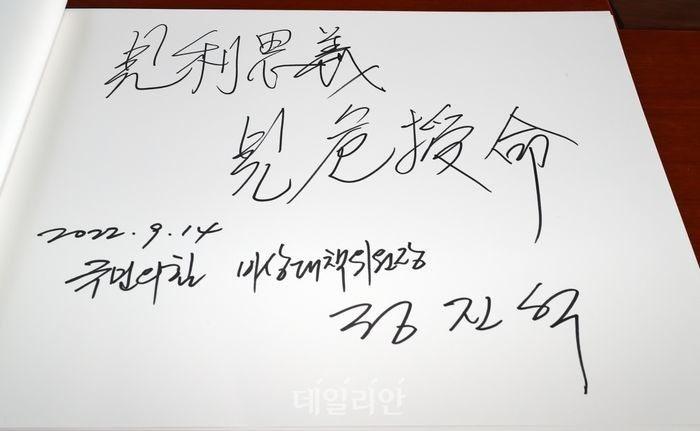 見利思義
見危授命
2022.9.14
국민의힘 비상대책위원장
정진석
데일리안